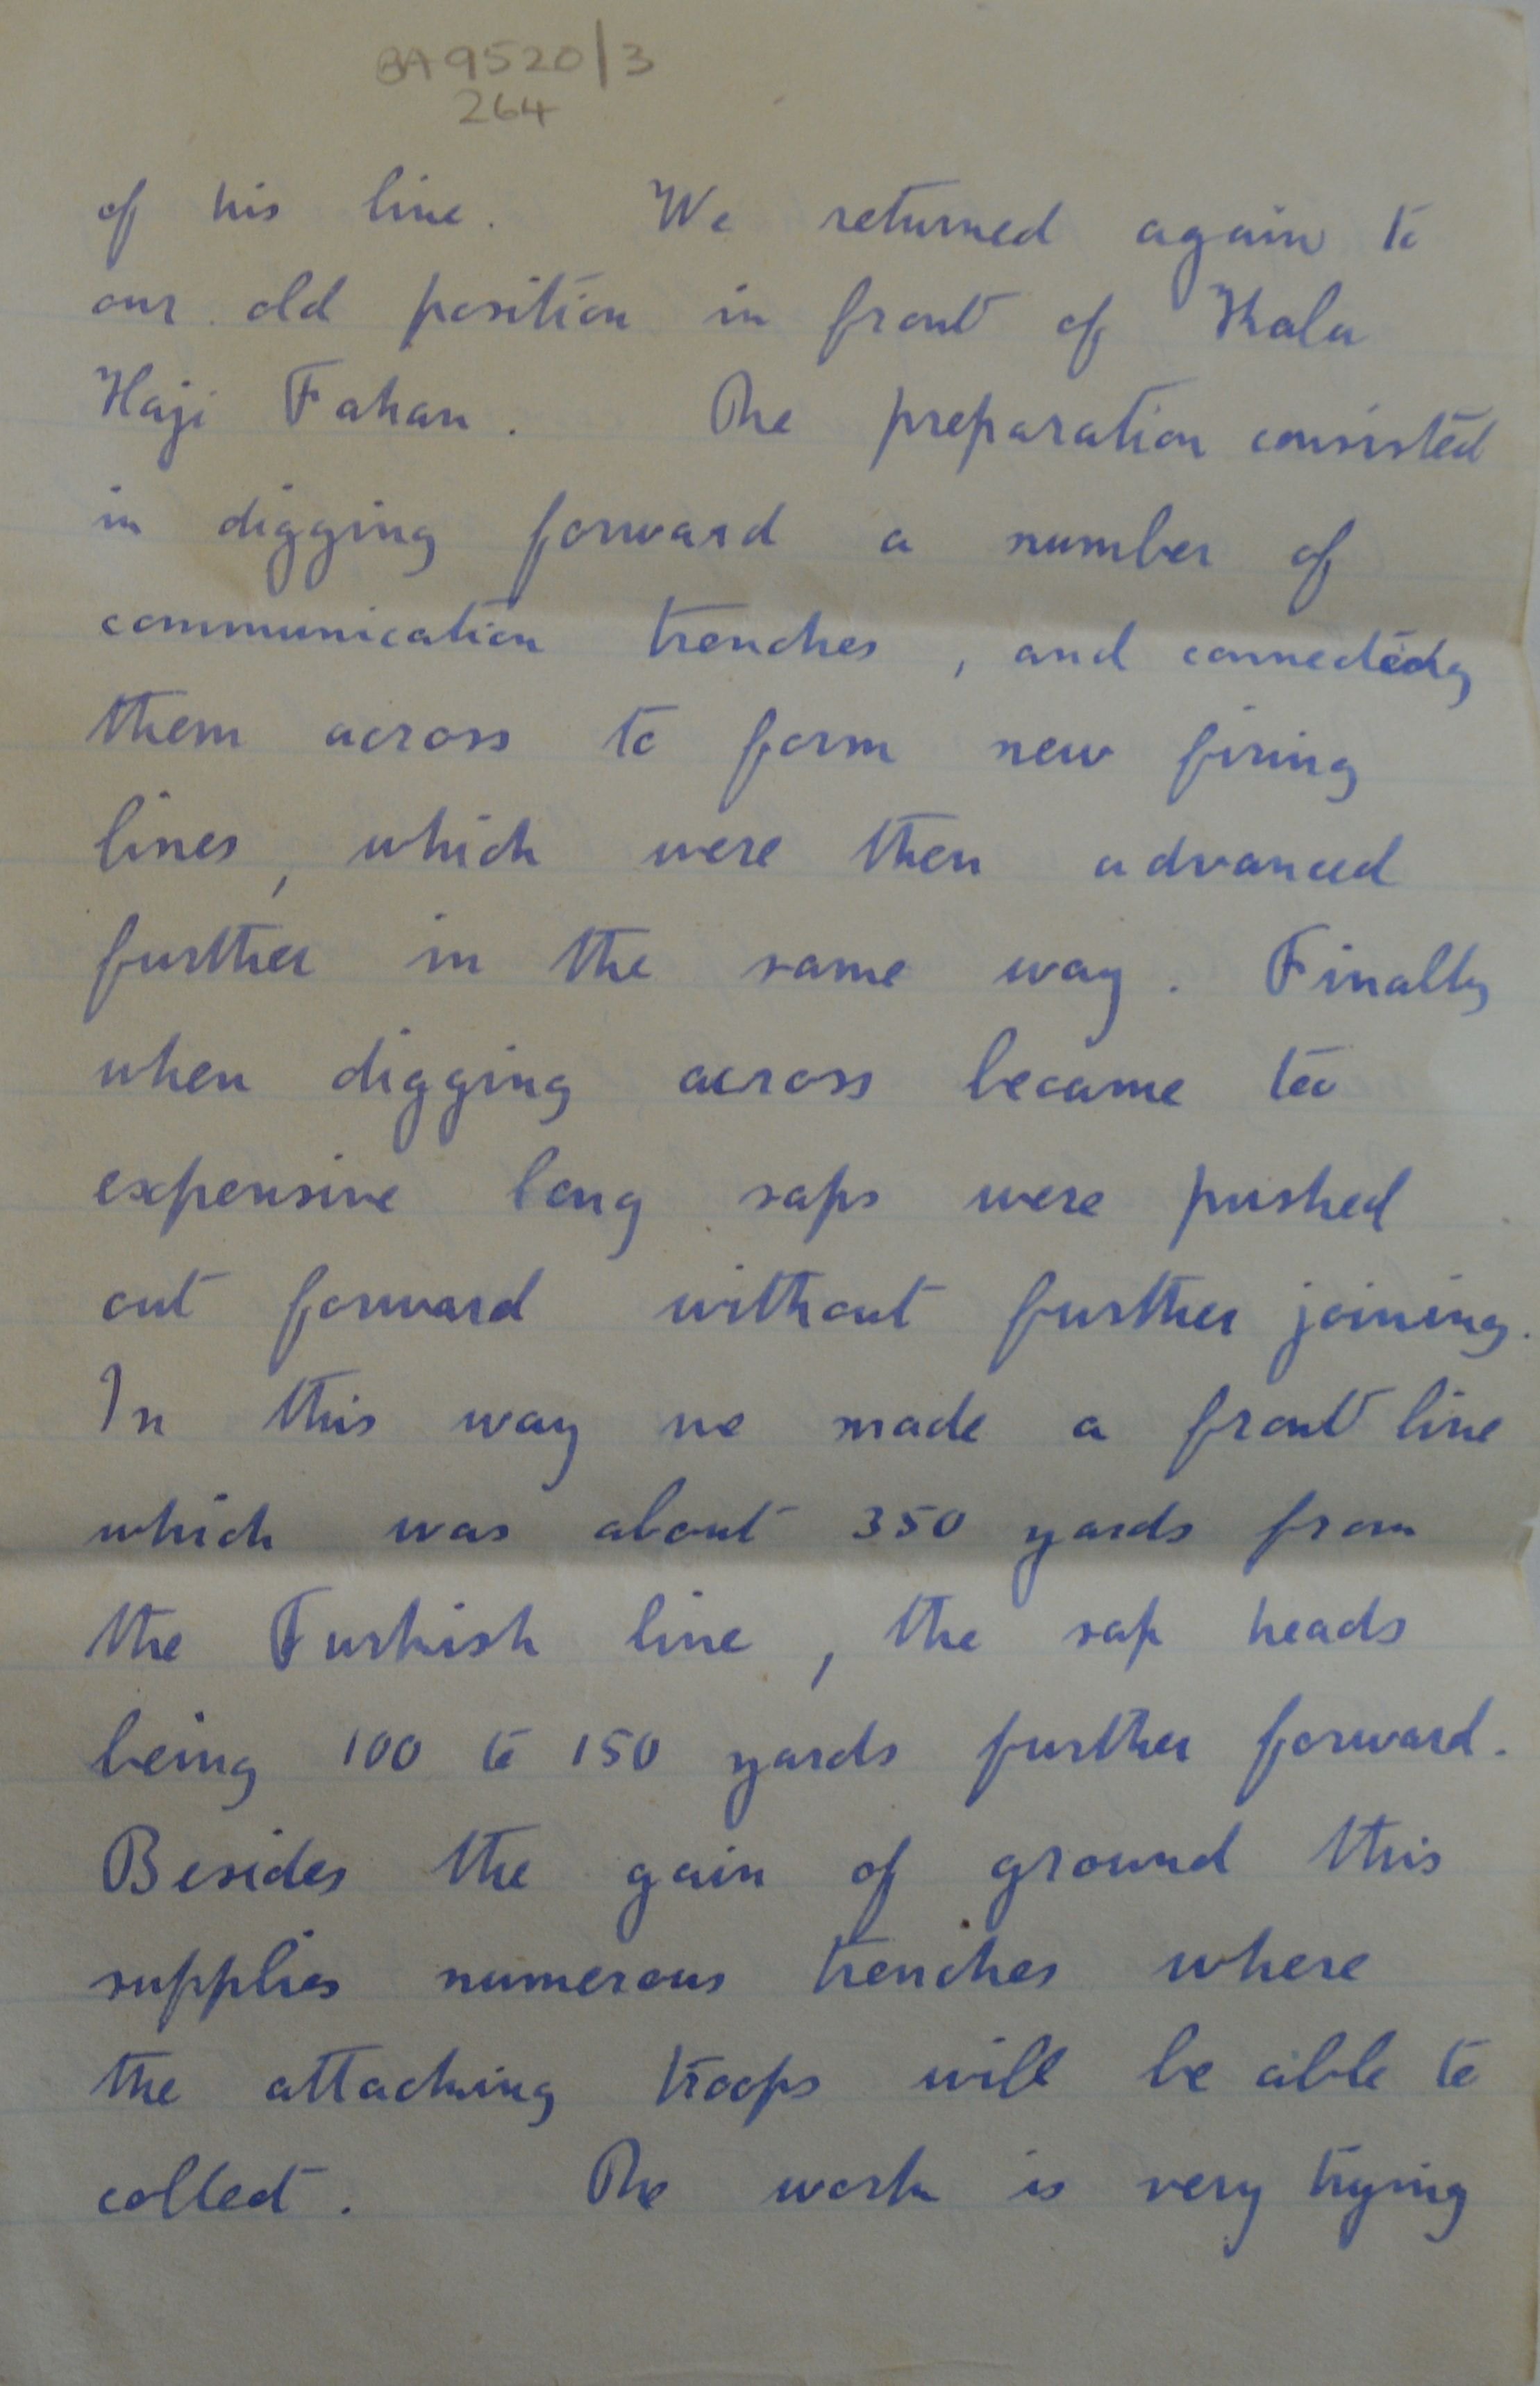 BA9520/3
264
of his line. We returned again to
our old position in front of Khalu
Haji Fahan. The preparation consisted
in digging forward a number of
communication trenches, and connecting
them across to form new firing
lines, which were then advanced
further in the same way. Finally
when digging across became too
expensive long saps were pushed
out forward without further joining.
In this way we made a front line
which was about 350 yards from
the Turkish line, the sap heads
being 100 to 150 yards further forward.
Besides the gain of ground this
supplies numerous trenches where
the attacking troops will be able to
collect. The work is very trying